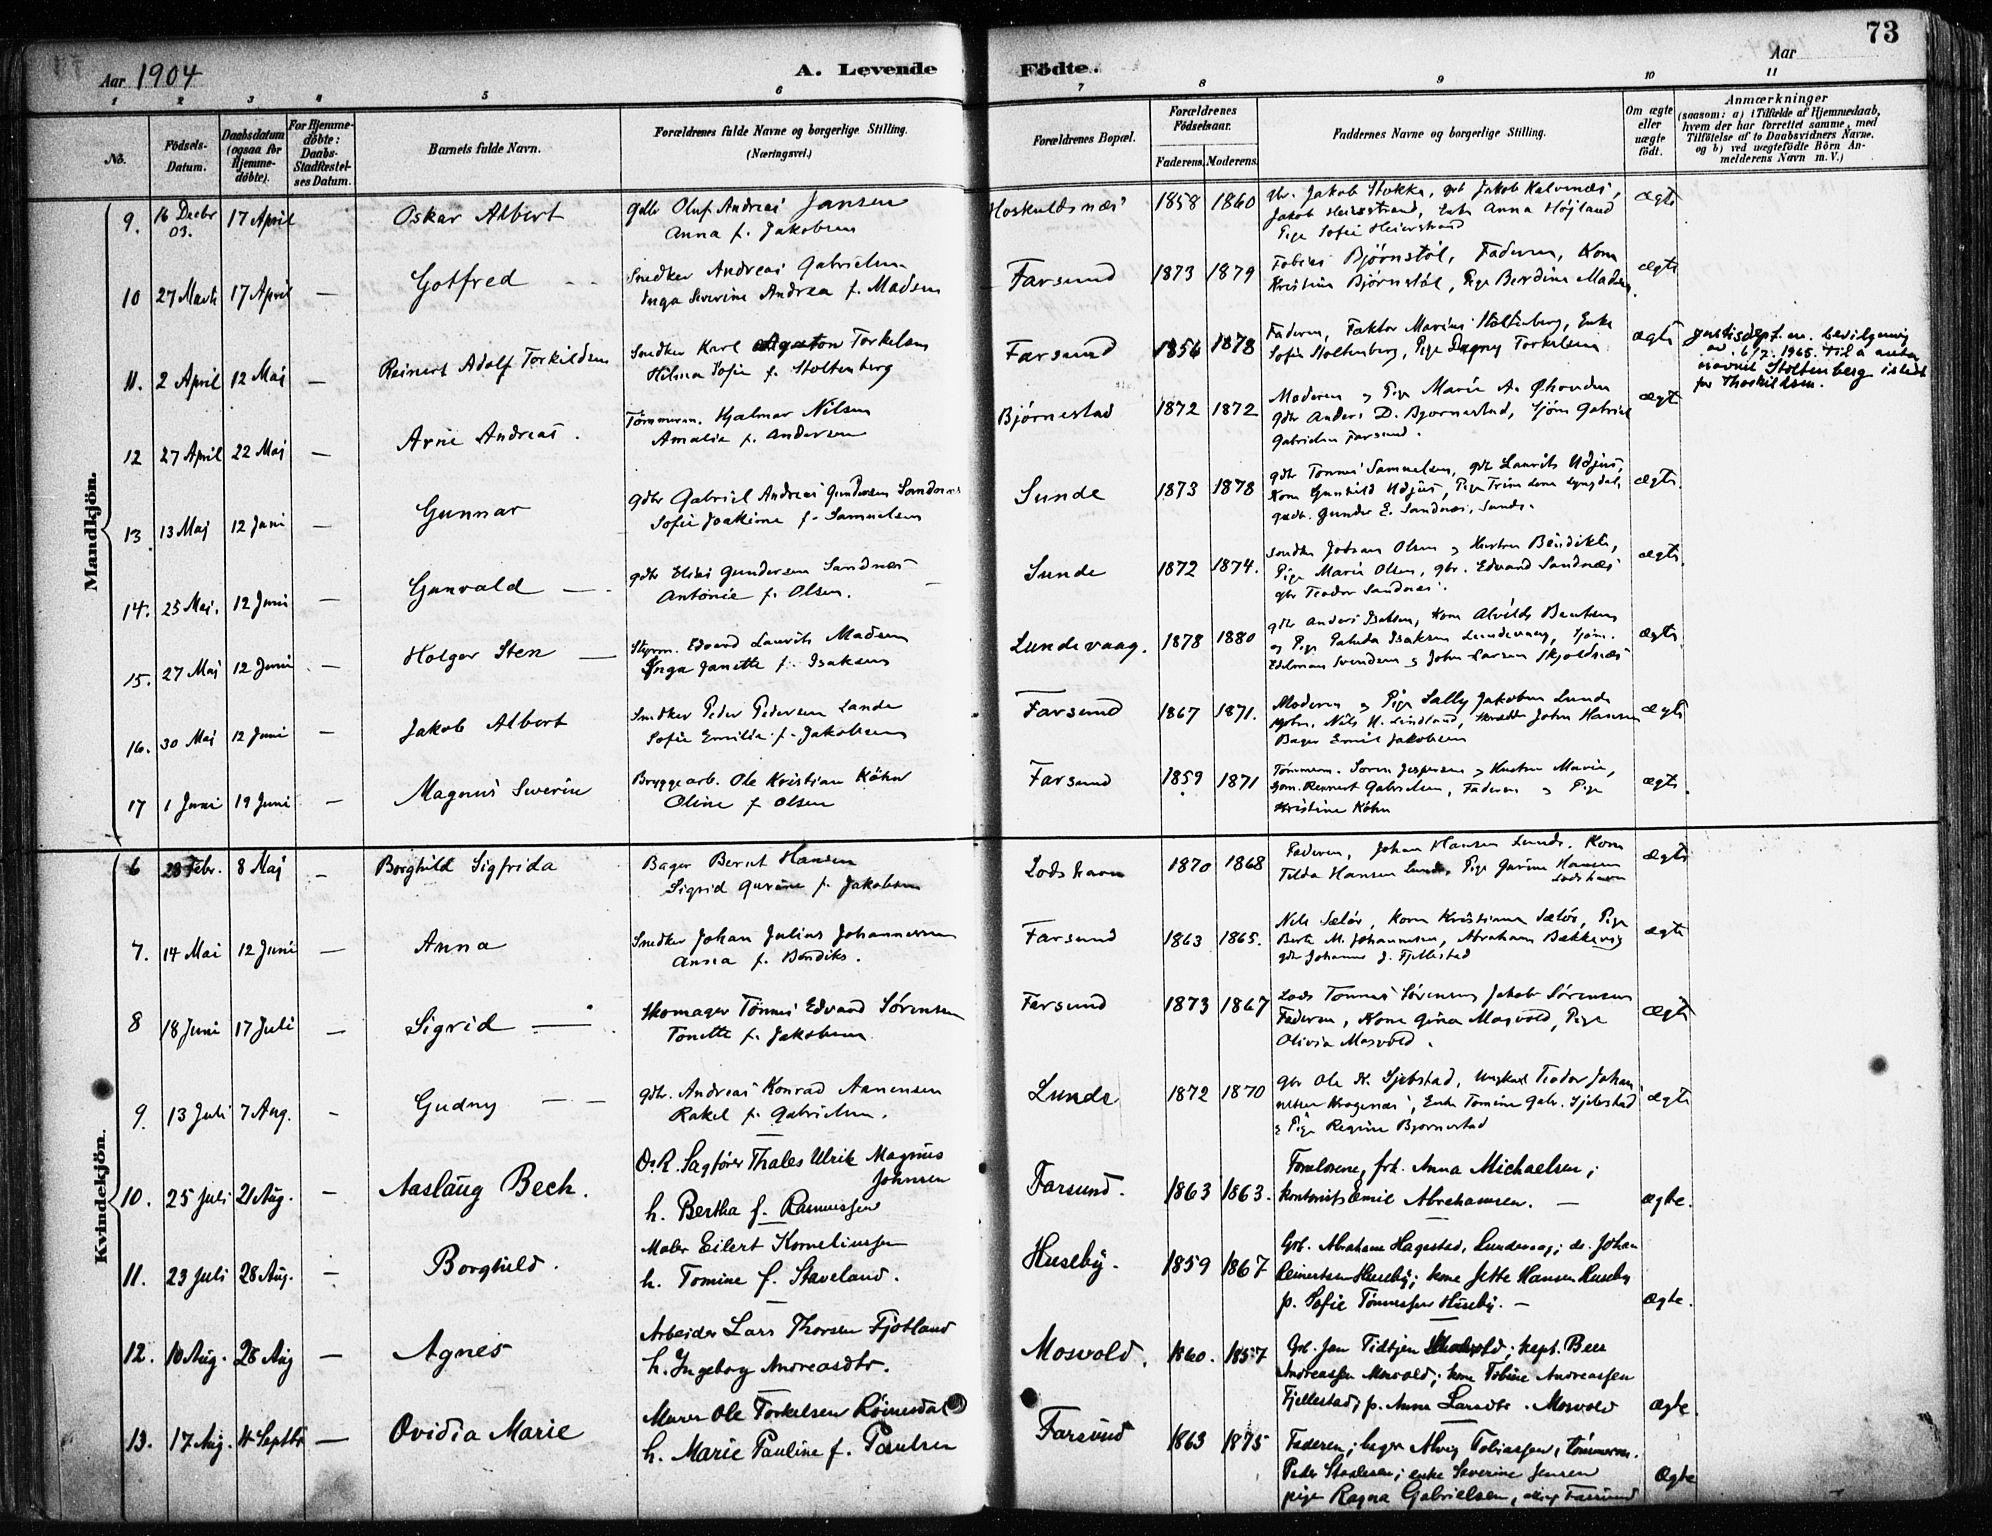 73
Aar 1904
A. Levende Födte.
Aar
1 2 3 4 5 6 7 8 9 10 11
No.
Födsels-Datum.
Daabsdatum (ogsaa for Hjemme-döbte).
For Hjemme-döbte: Daabs-Stadfæstel-ses Datum.
Barnets fulde Navn.
Forældrenes fulde Navne og borgerlige Stilling.
(Næringsvei.)
Forældrenes Bopæl.
Forældrenes Födselsaar.
Faderens. Moderens.
Faddernes Navne og borgerlige Stilling.
Om ægte eller uægte födt.
Anmærkninger
(saasom: a) i Tilfælde af Hjemmedaab, hvem der har forrettet samme, med Tilföielse af to Daabsvidners Navne, og b) ved uægtefödte Börn Anmelderens Navn m. V.)
Mandkjön.
9. 16 Decbr 03. 17 April Oskar Albert
gdbr Oluf Andreas Jansen
Anna f. Jakobsen
1858 1860
gbr. Jakob Stokke, gbr Jakob Kalvenæs,
Enke Anna Höjland
Pige Sofie
ægte
10 27 Marts 17 April — Gotfred
Snedker Andreas Gabrielsen
Inga Severine Andrea f. Madsen
Farsund 1873 1879
Tobias Bjørnstöl, Faderen, Kone
Kristine Bjørnstöl, Pige Berdine Madsen
ægte
11. 2 April 12 Maj — Reinert Adolf Torkildsen
Snedker Karl Agaton Torkelsen
Hilma Sofie f. Stoltenberg
Farsund 1856 1878
Faderen, Faktor Marius Stoltenberg, Enke
Sofie Stoltenberg, Pige Dagny Torkelsen
ægte
Justisdept. m. bevilgning
av 6/7. 1965. til å anta
navnet Stoltenberg istedet
for Thorkildsen.
12 27 April 22 Maj — Arne Andreas.
Tömmerm. Hjalmar Nilsen
Amalie f. Andersen
Björnestad 1872 1872
Moderen og Pige Marie A.
gdbr Anders D. Bjornestad, Sjöm Gabriel
Gabrielsen Farsund.
ægte
13 13 Maj 12 Juni — Gunnar
gdbr Gabriel Andreas Gundersen Sandnæs
Sofie Joakime f. Samuelsen
Sunde 1873 1878
gdb Tönnes Samuelsen, gdb Laurits Udjus,
Kone Gunhild Udjus, Pige Lyngdal,
gudb. Gunder E. Sandnæs, Sunde.
ægte
14. 25 Maj. 12 Juni — Gunvald
gdbr Elias Gundersen Sandnæs
Antonie f. Olsen.
Sunde 1872 1874.
Olsen og Hustru Bendikte,
Pige Marie Olsen, gbr. Edvard Sandnæs
gbr Teodor Sandnæs.
ægte
15. 27 Maj 12 Juni — Holger Sten
Styrm. Edvard Laurits Madsen
Inga Janette f. Isaksen
Lundevaag. 1878 1880
gdbr Anders Isaksen, Kone Alvilde Bentsen
og Pige Isaksen Lundevaag, Sjöm.
Edelman Svendsen og John Larsen Skjoldnæs
ægte
16. 30 Maj 12 Juni — Jakob Albert
Snedker Peder Pedersen Lande
Sofie Emilie f. Jakobsen
Farsund 1867 1871.
Moderen og Pige Sally Jakobsen Lunde
Nils H. Lindland, Skrædder John Hansen
Bager Emil Jakobsen
ægte
17 1 Juni 19 Juni — Magnus Severin
Bryggearb. Ole Kristian Köhn
Oline f. Olsen
Farsund 1859 1871
Tömmerm. Soren Jespersen og Hustru Marie,
Rennert Gabrielsen, Faderen og Pige
Kristine Köhn
ægte.
Kvindekjön.
6 28 Febr. 8 Maj — Borghild Sigfrida
Bager Bernt Hansen
Sigrid f. Jakobsen
Lodshavn 1870 1868
Faderen, Johan Hansen Lunde, Kone
Tilda Hansen Lunde, Pige Hansen
Lodshavn
ægte
7. 14 Mai 12 Juni — Anna
Snedker Johan Julius Johannesen
Anna f. Bendiks.
Farsund 1863 1865.
Nils Sælör, Kone Kristiane Sælör, Pige
Berte M. Johannesen, Abraham Bakkevig
gdb Johannes J. Fjellestad
ægte
8 18 Juni 17 Juli — Sigrid
Skomager Tönnes Edvard Sörensen
Tonette f. Jakobsen
Farsund 1873 1867
Lods Tonnes Sörensen, Jakob Sörensen
Faderen, Kone Gina Mosvold, Pige
Olivia Mosvold.
ægte
9. 13 Juli 7 Aug. — Gudny
gdbr. Andreas Konrad Aanensen
Rakel f. Gabrielsen.
Lunde 1872 1870
gbr Ole K. Sjebstad, Ungkarl Teodor Johan
Enke Tomine Gabr. Sjebstad
& Pige Regine Bjornestad
ægte
10. 25 Juli 21 Aug. — Aaslaug Bech.
O.R. Sagförer Thales Ulrik Magnus Johnsen
h. Bertha f. Rasmussen
Farsund. 1863 1863.
Forældrene, frk. Anna Michaelsen;
kontorist Emil Abrahamsen. —
ægte.
11. 23 Juli 28 Aug. — Borghild.
Maler Eilert Korneliussen
h. Tomine f. Staveland.
Huseby. 1859 1867
Grb. Abraham Hagestad, Lundevaag; do. Johan
Reinertsen Huseby; kone Jette Hansen Huseby
p. Sofie Tönnessen Huseby. —
ægte.
12. 10 Aug. 28 Aug — Agnes
Arbeider Lars Thorsen Fjotland
h. Ingeborg Andreasdtr.
Mosvold. 1860. 1857
Grb. Jan Tidtjen Mosvold; kapt. Beer
Andreassen Mosvold; kone Tobine Andreassen
Fjellestad, p. Anna Larsdtr. Mosvold
ægte.
13. 17 Aug. 4 Septbr — Ovidia Marie
Murer Ole Torkelsen Röinesdal
h. Marie Pauline f. Paulsen
Farsund 1863 1875
Faderen; bager Alves Tobiassen, tömmerm.
Peder Staalesen; enke Severine Jensen
pige Ragna Gabrielsen, alle af Farsund
Ægte